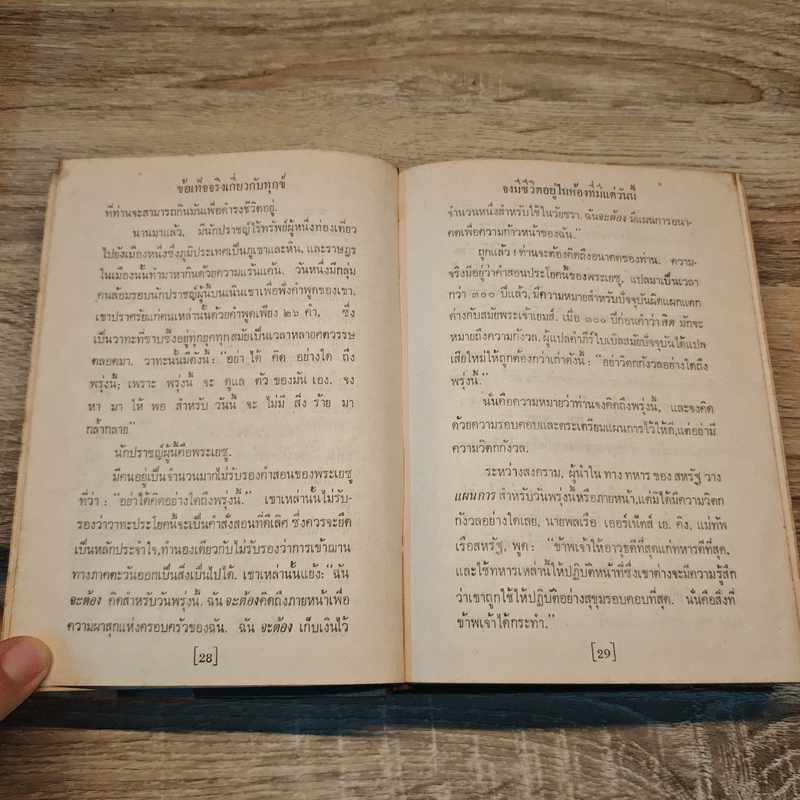 ข้อเท็จจริงเกี่ยวกับทุกข์
ที่ท่านจะสามารถกินมันเพื่อดำรงชีวิตอยู่.
นานมาแล้ว, มีนักปราชญ์ไร้ทรัพย์ผู้หนึ่งท่องเที่ยว
ไปยังเมืองหนึ่งซึ่งภูมิประเทศเป็นภูเขาและหิน, และราษฎร
ในเมืองนั้นทำมาหากินด้วยความแร้นแค้น. วันหนึ่งมีกลุ่ม
คนล้อมรอบนักปราชญ์ผู้นี้บนเนินเขาเพื่อฟังคำพูดของเขา.
เขาปราศรัยแก่คนเหล่านั้นด้วยคำพูดเพียง ๒๖ คำ, ซึ่ง
เป็นวาทะที่ซาบซึ้งอยู่ทุกยุคทุกสมัยเป็นเวลาหลายศตวรรษ
ตลอดมา. วาทะนั้นมีดังนี้: "อย่า ได้ คิด อย่างใด ถึง
พรุ่งนี้; เพราะ พรุ่งนี้ จะ ดูแล ตัว ของมัน เอง. จง
หา มา ให้ พอ สำหรับ วันนี้ จะ ไม่มี สิ่ง ร้าย มา
กล้ำกลาย"
นักปราชญ์ผู้นี้คือพระเยซู.
มีคนอยู่เป็นจำนวนมากไม่รับรองคำสอนของพระเยซู
ที่ว่า: "อย่าได้คิดอย่างใดถึงพรุ่งนี้." เขาเหล่านั้นไม่รับ-
รองว่าวาทะประโยคนี้จะเป็นคำสั่งสอนที่ดีเลิศ ซึ่งควรจะยึด
เป็นหลักประจำใจ, ทำนองเดียวกับไม่รับรองว่าการเข้าฌาน
ทางภาคตะวันออกเป็นสิ่งเป็นไปได้. เขาเหล่านั้นแย้ง: "ฉัน
จะต้อง คิดสำหรับวันพรุ่งนี้. ฉัน จะต้องคิดถึงภายหน้าเพื่อ
ความผาสุกแห่งครอบครัวของฉัน. ฉัน จะต้อง เก็บเงินไว้
[28]
จงมีชีวิตอยู่ในห้องที่มีแต่วันนี้
จำนวนหนึ่งสำหรับใช้ในวัยชรา. ฉันจะต้อง มีแผนการอนา-
คตเพื่อความก้าวหน้าของฉัน."
ถูกแล้ว! ท่านจะต้องคิดถึงอนาคตของท่าน. ความ-
จริงมีอยู่ว่าคำสอนประโยคนี้ของพระเยซู, แปลมาเป็นเวลา
กว่า ๓๐๐ ปีแล้ว, มีความหมายสำหรับปัจจุบันผิดแผกแตก
ต่างกับสมัยพระเจ้าเยมส์. เมื่อ ๓๐๐ ปีก่อนคำว่าคิด มักจะ
หมายถึงความกังวล. ผู้แปลคำภีร์ไบเบิลสมัยปัจจุบันได้แปล
เสียใหม่ให้ถูกต้องกว่าเก่าดังนี้: "อย่าวิตกกังวลอย่างใดถึง
พรุ่งนี้."
นั่นคือความหมายว่าท่านจงคิดถึงพรุ่งนี้, และจงคิด
ด้วยความรอบคอบและตระเตรียมแผนการไว้ให้ดี, แต่อย่ามี
ความวิตกกังวล.
ระหว่างสงคราม, ผู้นำใน ทาง ทหาร ของ สหรัฐ วาง
แผนการ สำหรับวันพรุ่งนี้หรือภายหน้า, แต่มิได้มีความวิตก
กังวลอย่างใดเลย, นายพลเรือ เออร์เน็สต์ เย. คิง, แม่ทัพ
เรือสหรัฐ, พูด: "ข้าพเจ้าให้อาวุธดีที่สุดแก่ทหารดีที่สุด,
และใช้ทหารเหล่านี้ให้ปฏิบัติหน้าที่ซึ่งเขาต่างจะมีความรู้สึก
ว่าเขาถูกใช้ให้ปฏิบัติอย่างสุขุมรอบคอบที่สุด. นั่นคือสิ่งที่
ข้าพเจ้าได้กระทำ."
[29]